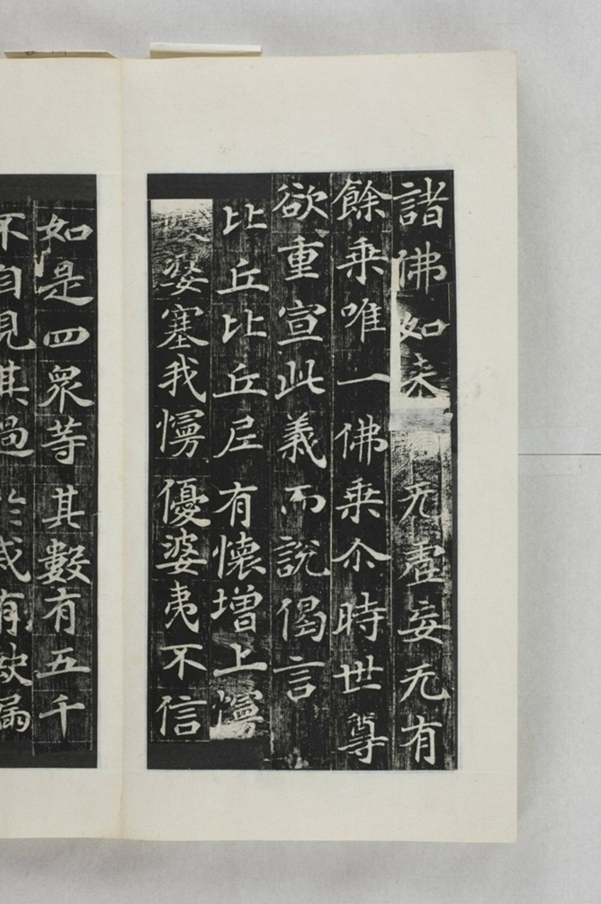 諸佛如来无虛妄无有
餘乗唯一佛乗尒時世尊
欲重宣此義而說偈言
比丘比丘尼 有懷增上慢
婆塞我慢 優婆夷不信
如是四衆等 其數有五千
不自見其過 於戒有缺漏